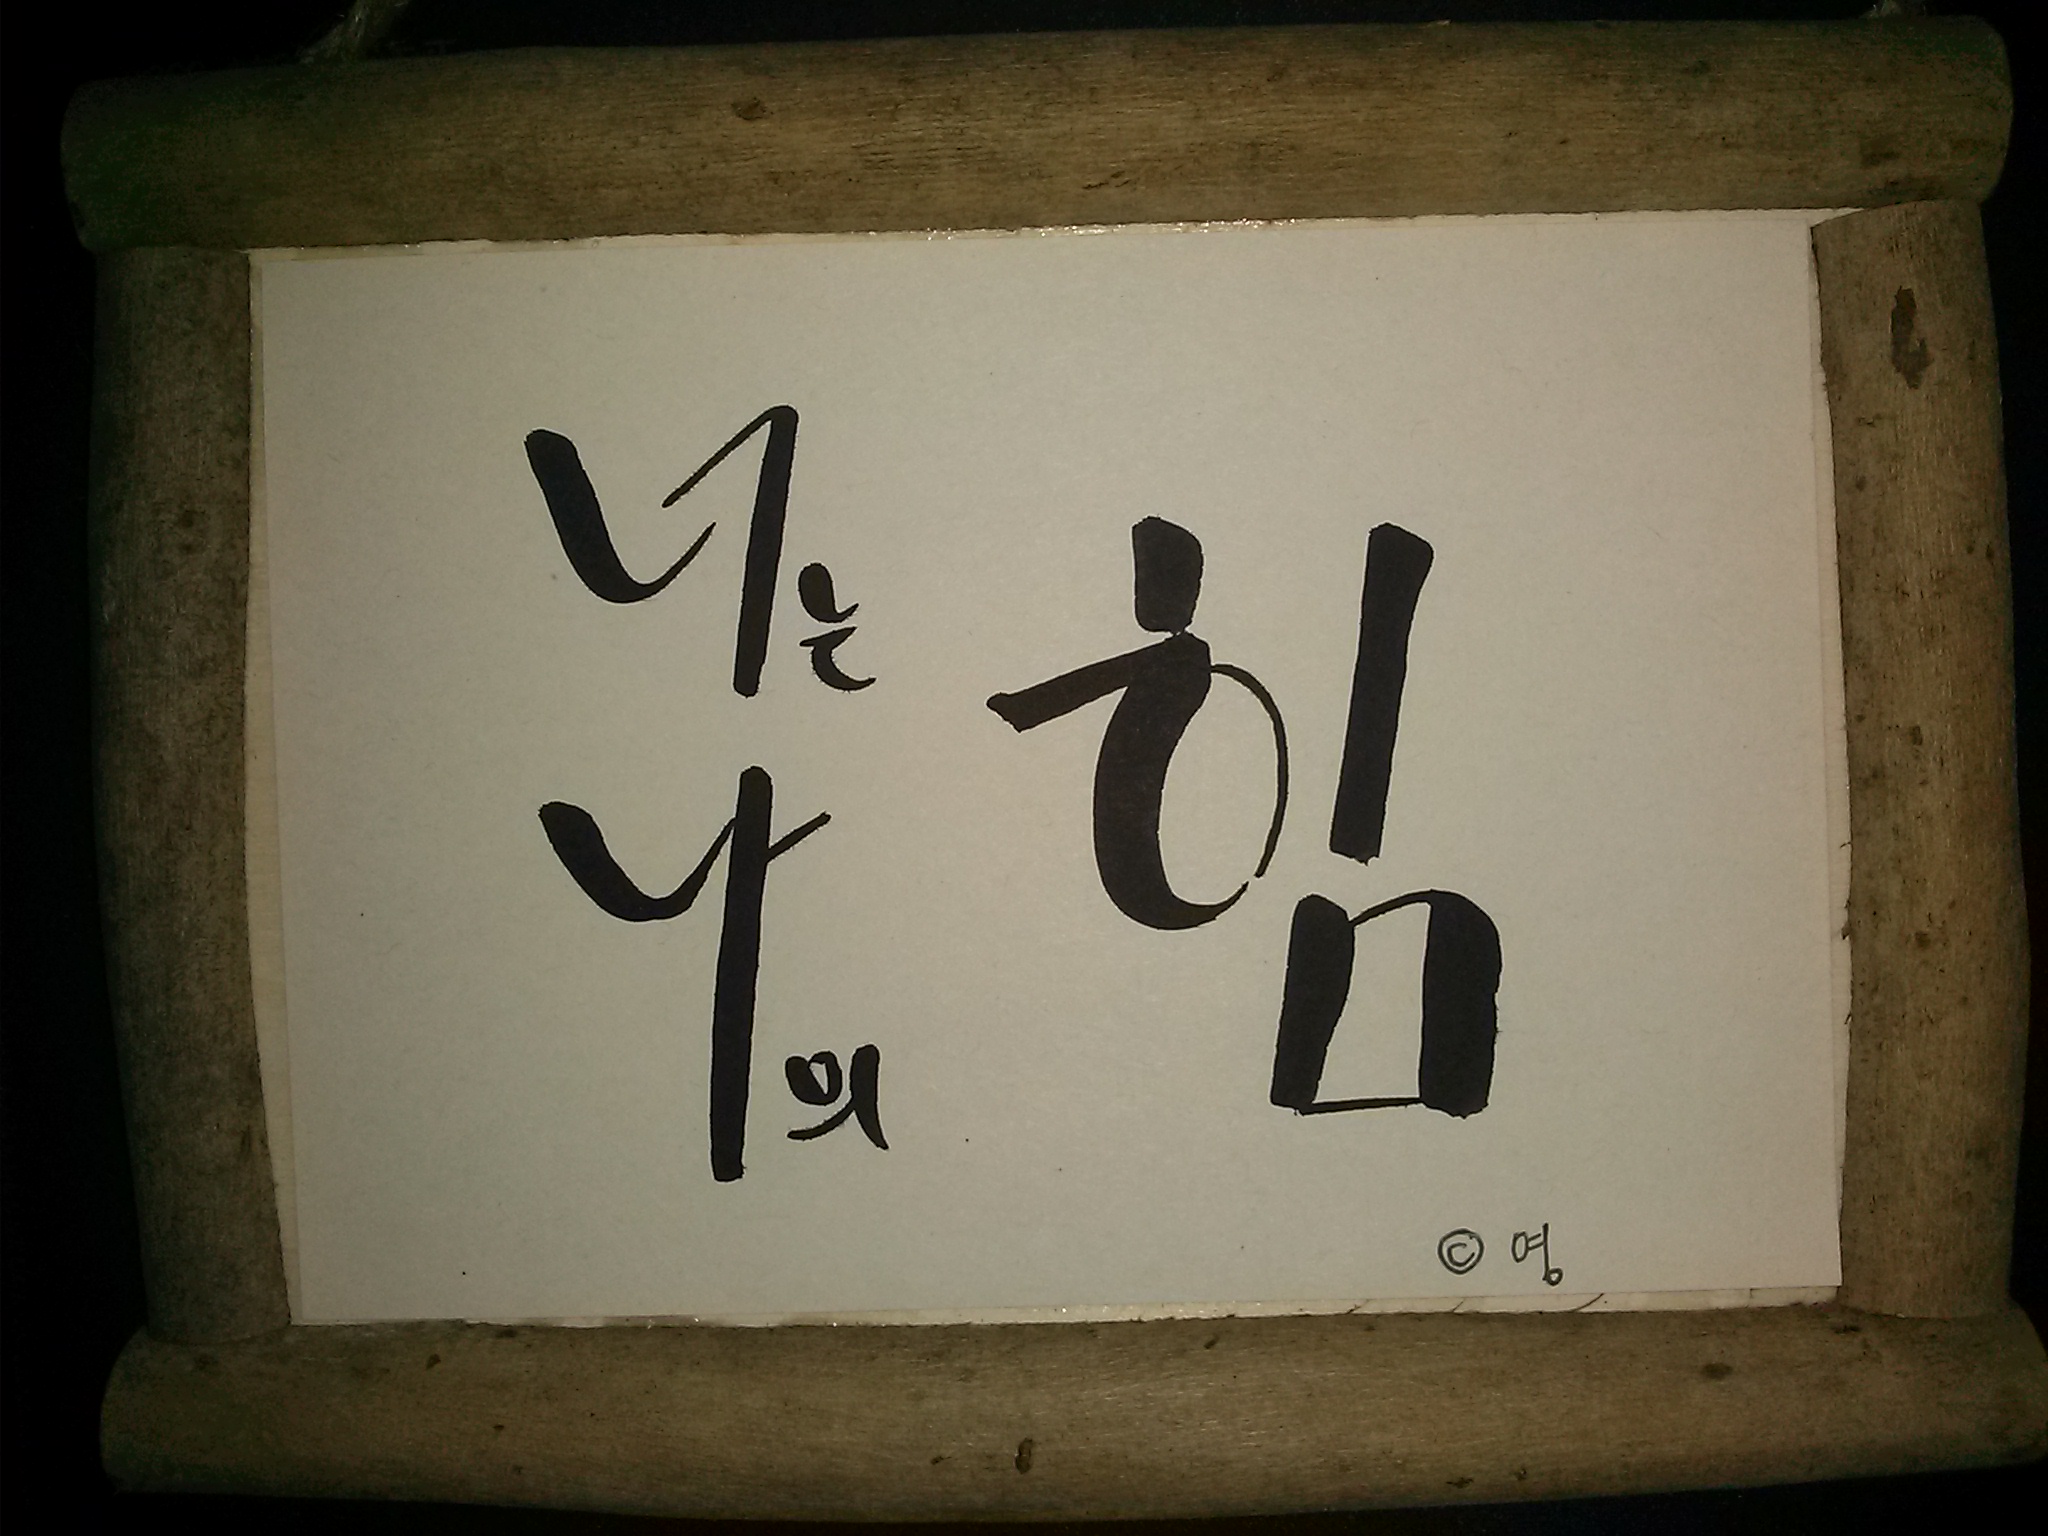 너는
나의
힘
© 영